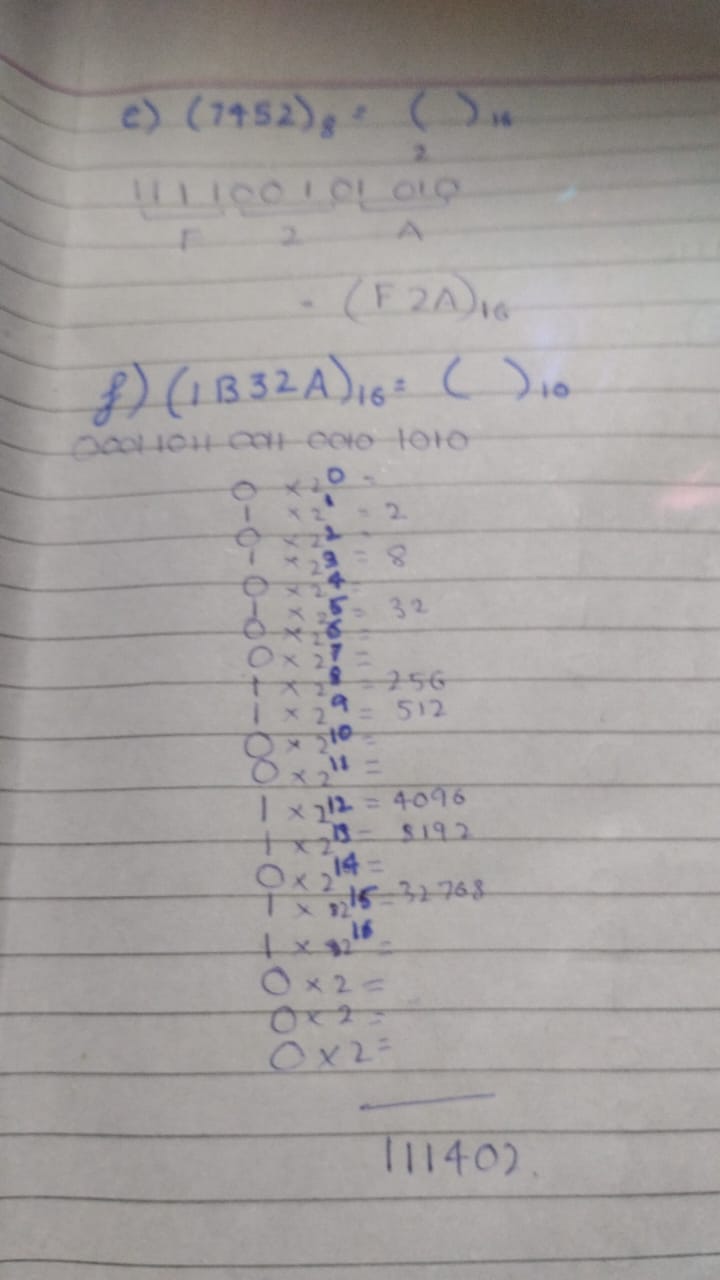 e) (7452)₈ = ( )₁₆
2
111100101010
F 2 A
= (F2A)₁₆
f) (1B32A)₁₆ = ( )₁₀
0001 1011 0011 0010 1010
0 × 2⁰ =
1 × 2¹ = 2
0 × 2² =
1 × 2³ = 8
0 × 2⁴ =
1 × 2⁵ = 32
0 × 2⁶ =
0 × 2⁷ =
1 × 2⁸ = 256
1 × 2⁹ = 512
0 × 2¹⁰ =
0 × 2¹¹ =
1 × 2¹² = 4096
1 × 2¹³ = 8192
0 × 2¹⁴ =
1 × 2¹⁵ = 32768
1 × 2¹⁶ =
0 × 2 =
0 × 2 =
0 × 2 =
111402.